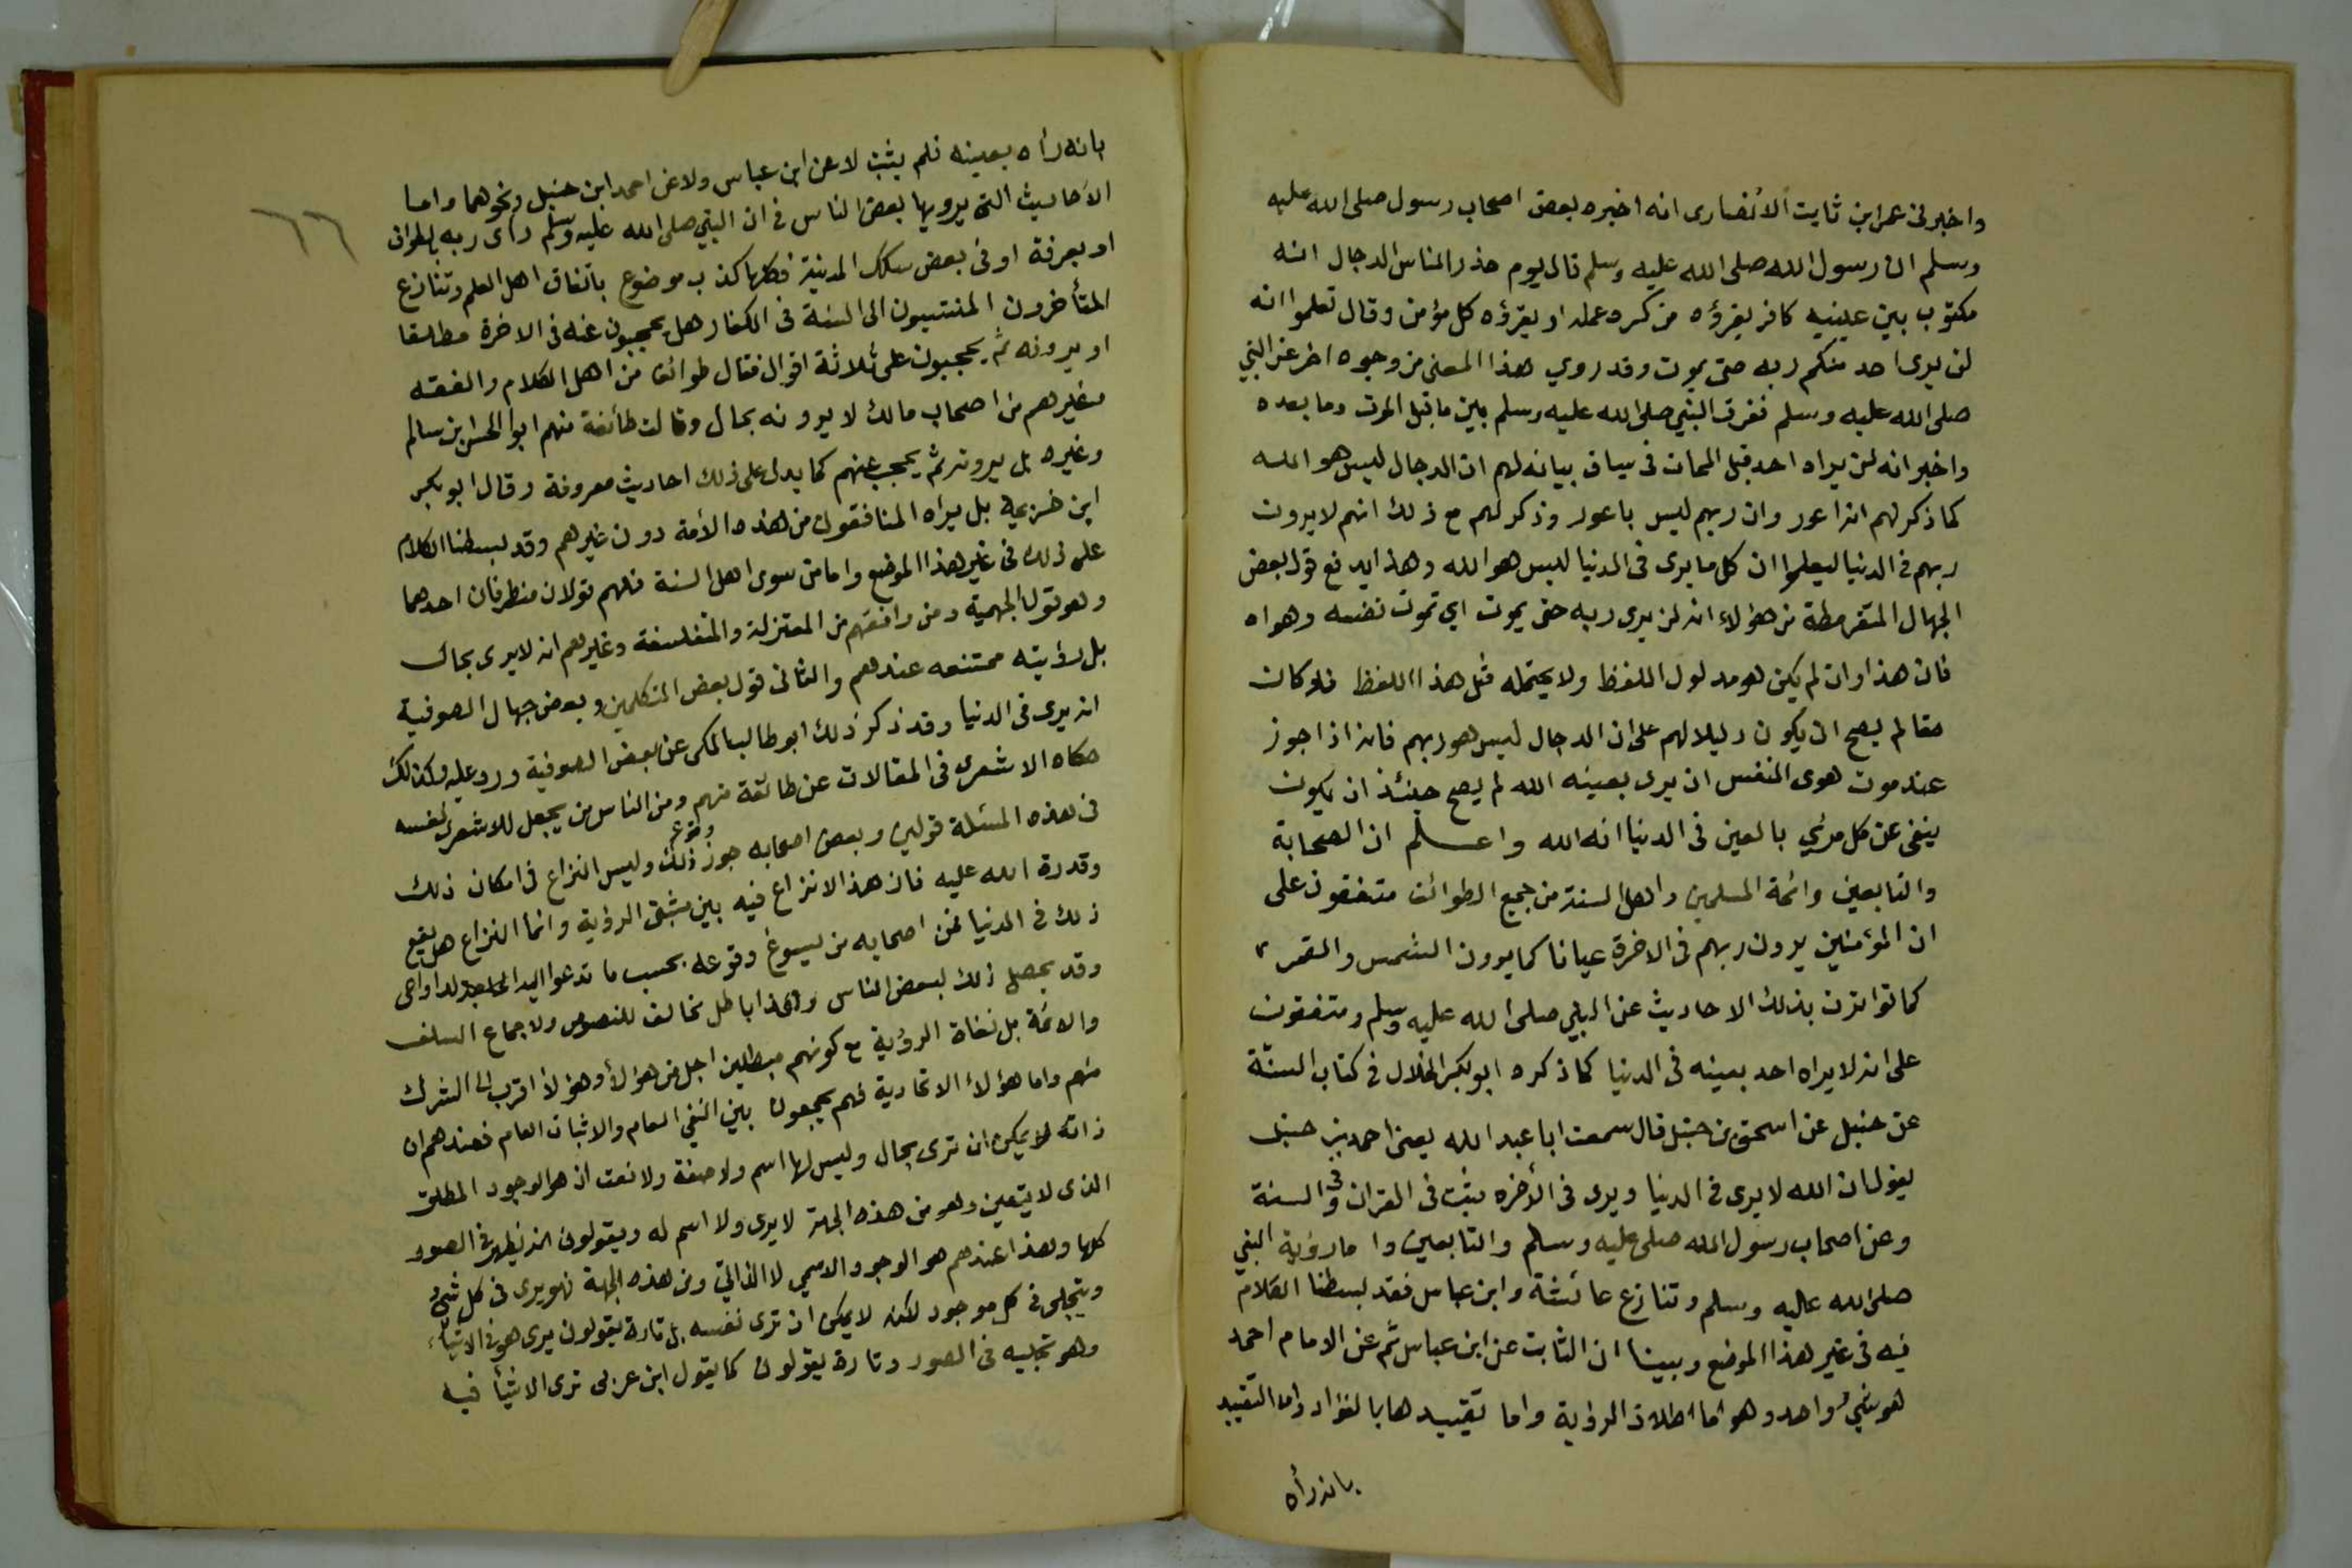 واخبرنى عمر ابن ثابت الانصارى انه اخبره بعض اصحاب رسول صلى الله عليه
وسلم ان رسول الله صلى الله عليه وسلم قال يوم حذر الناس الدجال انه
مكتوب بين عينيه كافر يقرؤه من كره عمله او يقرؤه كل مؤمن وقال تعلموا انه
لن يرى احد منكم ربه حتى يموت وقد روي هذا المعنى من وجوه اخر عن النبي
صلى الله عليه وسلم ففرق النبي صلى الله عليه وسلم بين ما قبل الموت وما بعده
واخبر انه لن يراه احد قبل الممات فى سياق بيانه لهم ان الدجال ليس هو الله
كما ذكر لهم انه اعور وان ربهم ليس باعور وذكر لهم مع ذلك انهم لا يرون
ربهم فى الدنيا ليعلموا ان كل ما يرى فى الدنيا ليس هو الله وهذا يدفع قول بعض
الجهال المتقرمطة من هؤلاء انه لن يرى ربه حتى يموت اي تموت نفسه وهواه
فان هذا وان لم يكن هو مدلول اللفظ ولا يحتمله مثل هذا اللفظ فلو كان
حقا لم يصح ان يكون دليلا لهم على ان الدجال ليس هو ربهم فانه اذا جوز
عند موت هوى النفس ان يرى بعينه الله لم يصح حينئذ ان يكون
ينفى عن كل مرئي بالعين فى الدنيا انه الله واعلم ان الصحابة
والتابعين وائمة المسلمين واهل السنة من جميع الطوائف متفقون على
ان المؤمنين يرون ربهم فى الاخرة عيانا كما يرون الشمس والقمر
كما تواترت بذلك الاحاديث عن النبي صلى الله عليه وسلم ومتفقون
على انه لا يراه احد بعينه فى الدنيا كما ذكره ابو بكر الخلال فى كتاب السنّة
عن حنبل عن اسحق بن حنبل قال سمعت ابا عبد الله يعنى احمد بن حنبل
يقول ان الله لا يرى فى الدنيا ويرى فى الأخره يثبت فى القران وفى السنة
وعن اصحاب رسول الله صلى عليه وسلم والتابعين واما رؤية النبي
صلى الله عليه وسلم وتنازع عائشة وابن عباس فقد بسطنا الكلام
فيه فى غير هذا الموضع وبينا ان الثابت عن ابن عباس ثم عن الامام احمد
هو شيء واحد وهو اما اطلاق الرؤية واما تقييدها بالفؤاد واما التقييد
بانه رأه
٦٦
بانه رأه بعينه فلم يثبت لا عن ابن عباس ولا عن احمد ابن حنبل ونحوهما واما
الاحاديث التى يرويها بعض الناس فى ان النبي صلى الله عليه وسلم رأى ربه بالطواف
او بعرفة او فى بعض سكك المدينة فكلها كذب موضوع باتفاق اهل العلم وتنازع
المتأخرون المنتسبون الى السنة فى الكفار هل يحجبون عنه فى الاخرة مطلقا
او يرونه ثم يحجبون على ثلاثة اقوال فقال طوائف من اهل الكلام والفقه
وغيرهم من اصحاب مالك لا يرونه بحال وقالت طائفة منهم ابو الحسن بن سالم
وغيره بل يرونه ثم يحجب عنهم كما يدل على ذلك احاديث معروفة وقال ابو بكر
ابن خزيمة بل يراه المنافقون من هذه الأمة دون غيرهم وقد بسطنا الكلام
على ذلك فى غير هذا الموضع واما من سوى اهل السنة فلهم قولان متطرفان احدهما
وهو قول الجهمية ومن وافقهم من المعتزلة والمتفلسفة وغيرهم انه لا يرى بحال
بل رؤيته ممتنعه عندهم والثانى قول بعض المتكلمين وبعض جهال الصوفية
انه يرى فى الدنيا وقد ذكر ذلك ابو طالب المكى عن بعض الصوفية ورد عليه وكذلك
حكاه الاشعرى فى المقالات عن طائفة منهم ومن الناس من يجعل للاشعرى نفسه
فى هذه المسئلة قولين وبعض اصحابه جوز وقوع ذلك وليس النزاع فى امكان ذلك
وقدرة الله عليه فان هذا لا نزاع فيه بين مثبتى الرؤية وانما النزاع هل يقع
ذلك فى الدنيا فمن اصحابه من يسوغ وقوعه بحسب ما تدعوا اليه
وقد يحصل ذلك لبعض الناس وهذا باطل مخالف للنصوص ولاجماع السلف
والائمة بل نفاة الرؤية مع كونهم مبطلين اجل من هؤلأ وهؤلأ اقرب الى الشرك
منهم واما هؤلاء الاتحادية فهم يجمعون بين النفي العام والاثبات العام فعندهم ان
ذاته لا يمكن ان ترى بحال وليس لها اسم ولا صفة ولا نعت اذ هو الوجود المطلق
الذى لا يتعين وهو من هذه الجهة لا يرى ولا اسم له ويقولون انه يظهر فى الصور
كلها وهذا عندهم هو الوجود الاسمي لا الذاتي ومن هذه الجهة فهو يرى فى كل شيء
ويتجلى فى كل موجود لكنه لا يمكن ان ترى نفسه بل تارة يقولون يرى هو فى الاشياء
وهو تجليه فى الصور وتارة يقولون كما يقول ابن عربى ترى الاشيأ فيه